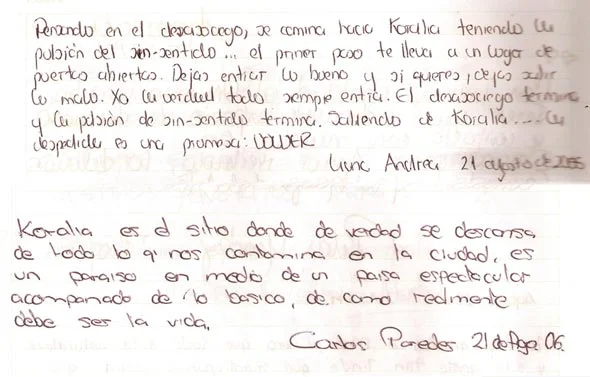 Pensando en el desasosiego, se camina hacia Koralia teniendo la
pulsión del sin-sentido... el primer paso te lleva a un lugar de
puertas abiertas. Dejas entrar lo bueno y si quieres, dejas salir
lo malo. Yo la verdad todo siempre entra. El desasosiego termina
y la pulsión de sin-sentido termina. Saliendo de Koralia.... la
despedida es una promesa: VOLVER
Andrea 21 agosto de
Koralia es el sitio donde de verdad se descansa
de todo lo q nos contamina en la ciudad, es
un paraiso en medio de un paisa espectacular
acompañado de lo basico, de como realmente
debe ser la vida.
Carlos Paredes 21 de Ago 06.